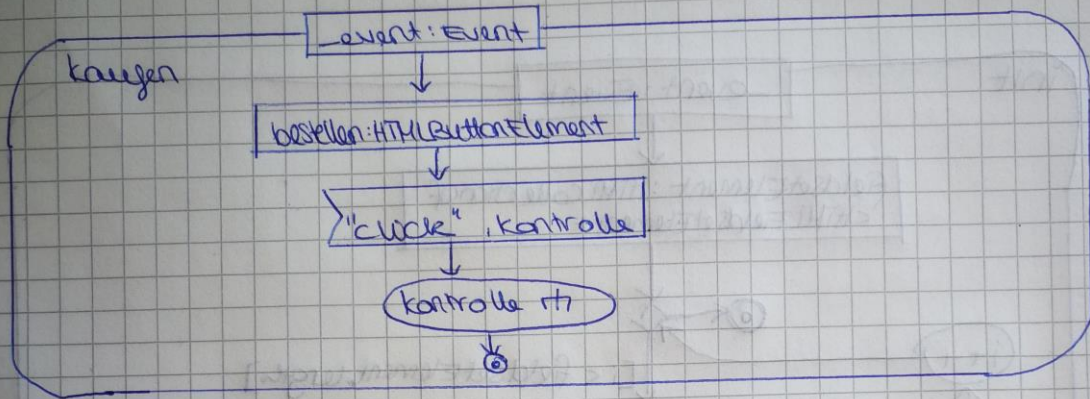 _event: Event
kaufen
bestellen: HTMLButtonElement
"click", kontrolle
kontrolle